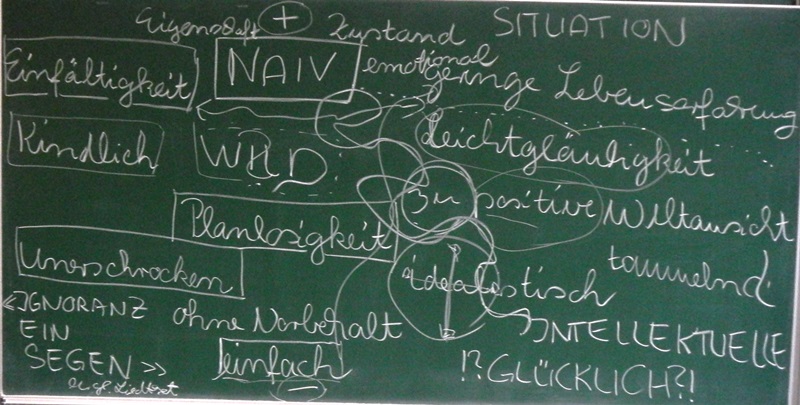 Eigenschaft + Zustand SITUATION
Einfältigkeit NAIV emotional geringe Lebenserfahrung
Kindlich WILD Leichtgläubigkeit
Planlosigkeit zu positive Weltansicht
Unerschrocken idealistisch taumelnd
«IGNORANZ ohne Vorbehalt INTELLEKTUELLE
EIN
SEGEN» einfach !? GLÜCKLICH?!